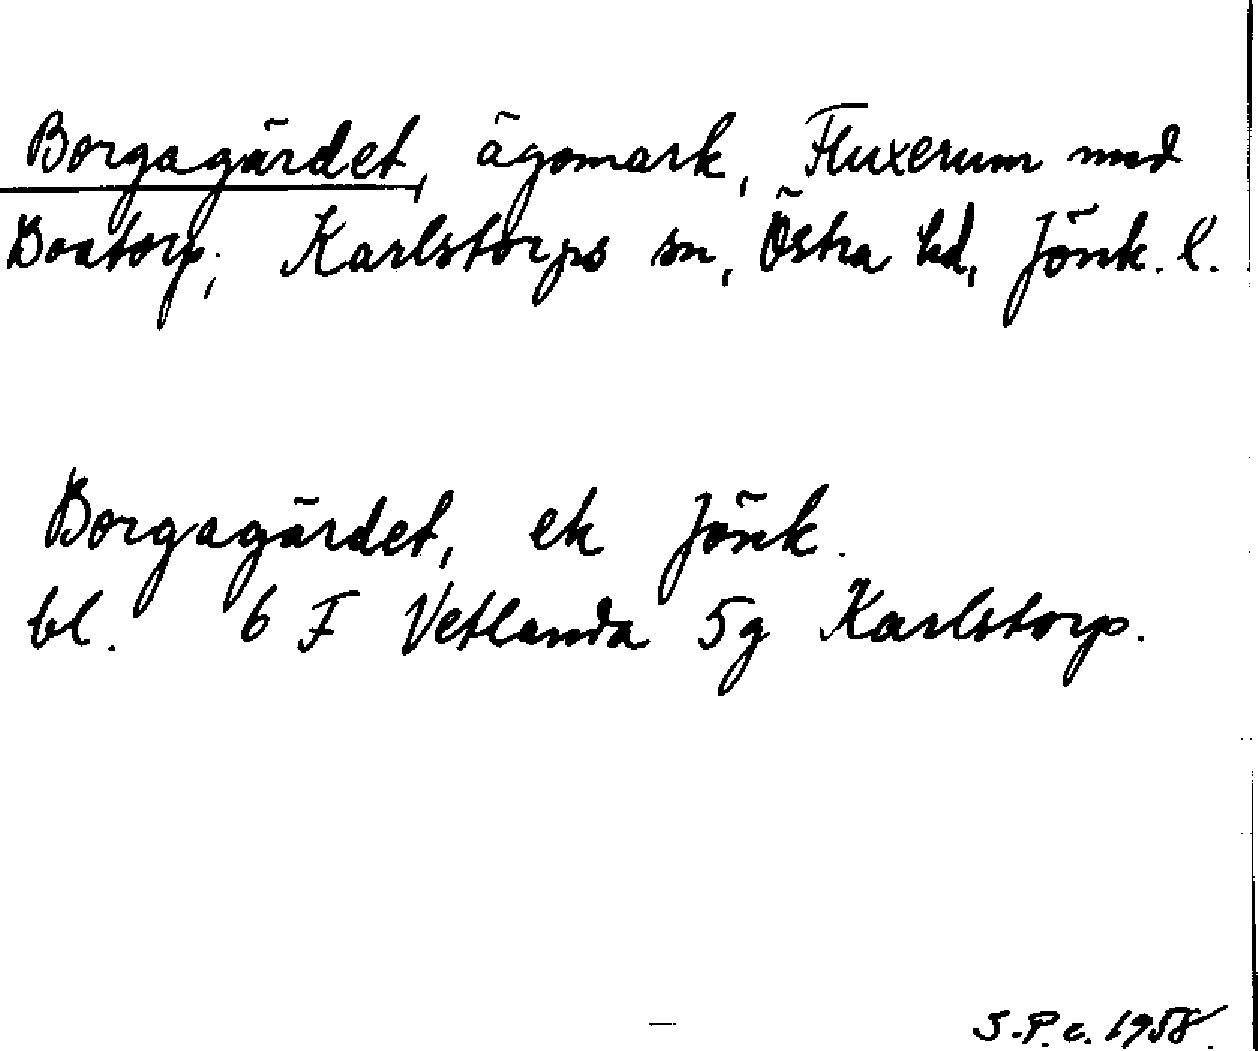 Borgagärdet, ägomark, Fluxerum med
Boatorp, Karlstorps sn, Östra hd, Jönk. l.
Borgagärdet, ek Jönk.
bl. 6 F Vetlanda 5g Karlstorp.
S.P.c. 1958.